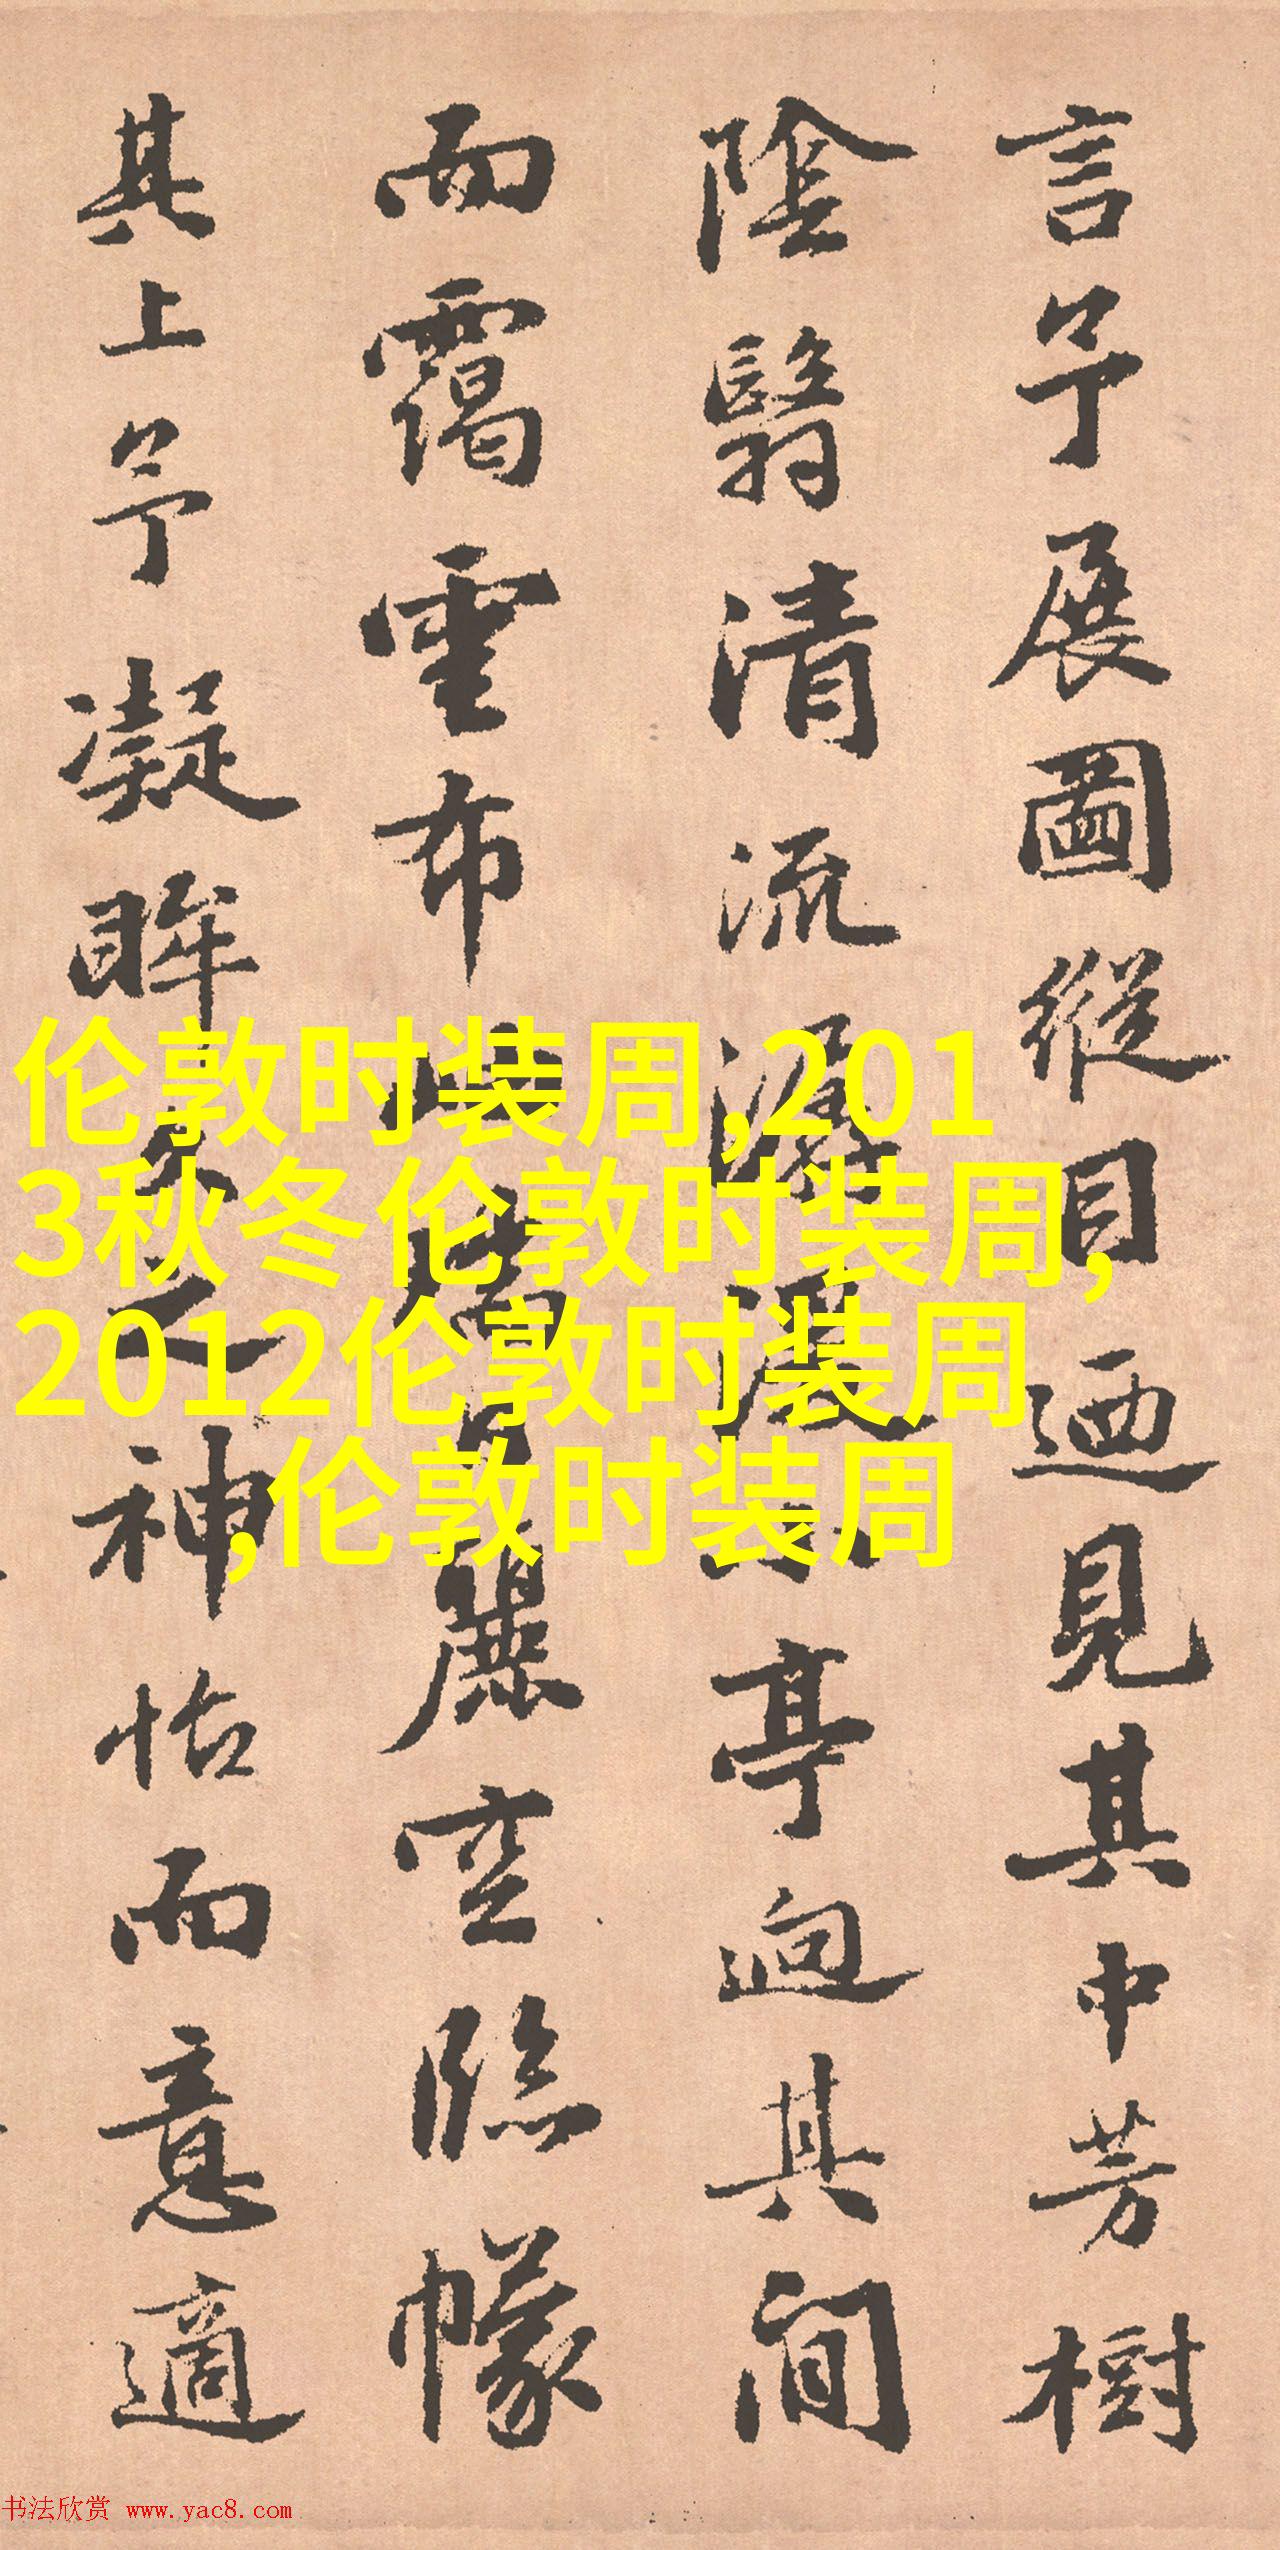 言予展圖縱目迺見其中芳樹
陰翳清流潺湲小亭迥其間
而靄雲布山儲麗空臨幪
其上予凝眸久之神怡而意適
伦敦时装周,201
3秋冬伦敦时装周,
2012伦敦时装周
,伦敦时装周
书法欣赏 www.yac8.com